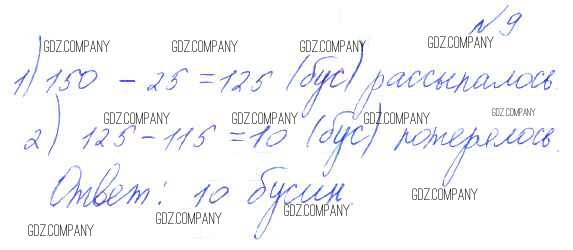 №9
GDZ.COMPANY GDZ.COMPANY GDZ.COMPANY GDZ.COMPANY
1) 150 - 25 = 125 (бус) рассыпалось.
GDZ.COMPANY GDZ.COMPANY GDZ.COMPANY GDZ.COMPANY
2) 125 - 115 = 10 (бус) потерялось.
Ответ: 10 бусин.
GDZ.COMPANY GDZ.COMPANY GDZ.COMPANY GDZ.COMPANY